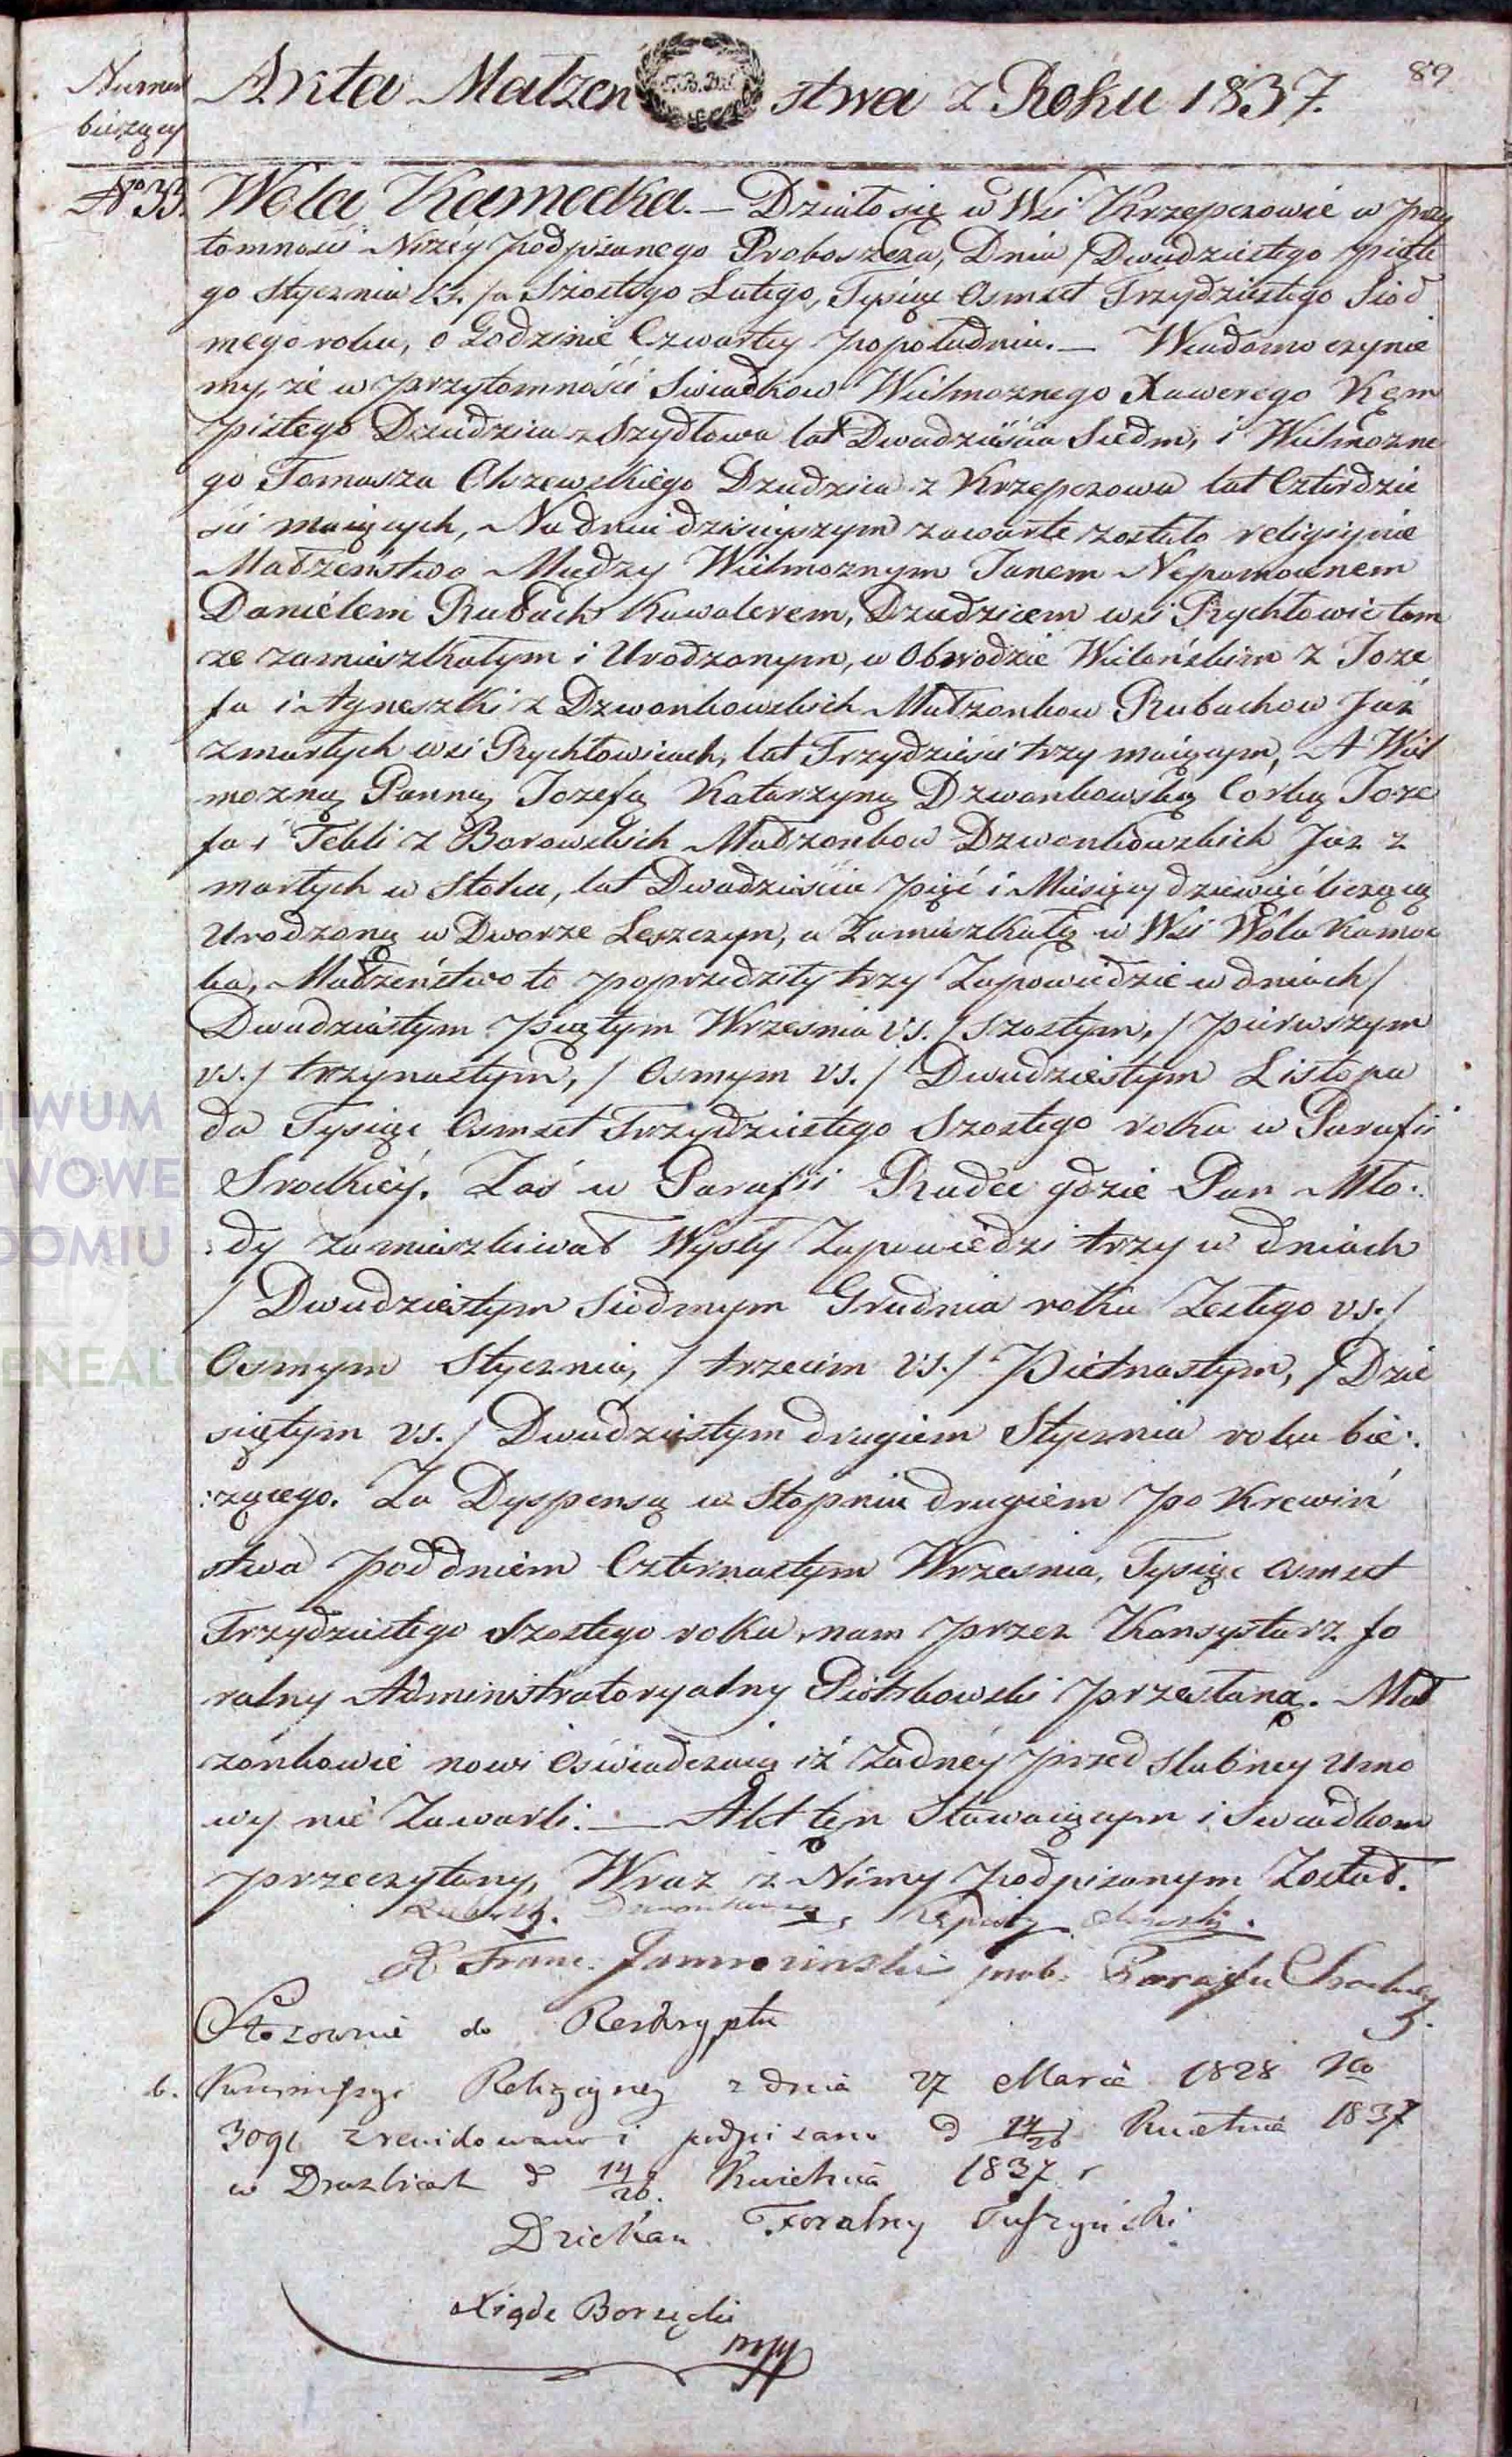 Numer bieżący
Akta Małżeń stwa z Roku 1837.
89
No 33. Wola Kamocka. — Działo się w Wsi Krzepczowie w przy
tomności Niżéy podpisanego Proboszcza, Dnia / Dwudziestego piąte
go Stycznia v.s. / a Szostego Lutego, Tysiąc Osmset Trzydziestego Siod
mego roku, o Godzinie Czwartey popołudniu. — Wiadomo czynie
my, że w przytomności Swiadkow Wielmoznego Xawerego Kęm
pistego Dziedzica z Szydłowa lat Dwadzieścia Siedm, i Wielmozne
go Tomasza Olszewskiego Dziedzica z Krzepczowa lat Czterdzie
ści maiących, Na dniu dzisieyszym zawarte zostało religijnie
Małżeństwo Miedzy Wielmoznym Janem Nepomocenem
Danielem Rubach Kawalerem, Dziedzicem wsi Rychłowic tam
ze zamieszkałym i Urodzonym, w Obwodzie Wieluńskim z Joze
fa i Agneszki z Dzwonkowskich Małzonkow Rubachow Juz
zmarłych wsi Rychłowicach, lat Trzydzieści trzy maiącym, A Wiel
mozną Panną Jozefą Katarzyną Dzwonkowską Corką Joze
fa i Tekli z Borowskich Małzonkow Dzwonkowskich Juz z
marłych w Stoku, lat Dwadzieścia pięć i Miesięcy dziewięć liczącą
Urodzoną w Dworze Leszczyn, a Zamieszkałą w Wsi Wola Kamoc
ka, Małżeństwo to poprzedziły trzy Zapowiedzie w dniach /
Dwudziestym piątym Wrzesnia v.s. / szostym, / pierwszym
v.s. / trzynastym, / Osmym v.s. / Dwudziestym Listopa
da Tysiąc Osmset Trzydziestego Szostego roku w Parafii
Srockiéy. Zaś w Parafii Rudce gdzie Pan Mło:
:dy zamieszkiwał Wyszły Zapowiedzi trzy w dniach
/ Dwudziestym Siodmym Grudnia roku Zeszłego v.s. /
Osmym Stycznia, / trzecim v.s. / Pietnastym, / Dzie
siątym v.s. / Dwudziestym drugiem Stycznia roku bie:
:zącego. Za Dyspensą w Stopniu drugiem po Krewiń
stwa pod dniem Czternastym Wrzesnia, Tysiąc Osmset
Trzydziestego Szostego roku, nam przez Konsystorz fo
ralny Administratoryalny Piotrkowski przesłaną. Mał
zonkowie nowi Oświadczaią iż Zadnéy przed slubney Umo
wy nie Zawarli: — Akt ten Stawaiącym i Swiadkom
przeczytany, Wraz z Nimy podpisanym Został.
X Franc. Jamrozinski prob. Parafii Srockiey
Stosownie do Reskryptu
Kommissyi Religijney z dnia 27 Marca 1828 No
3091 zrewidowano i podpisano d 14/26 Kwietnia 1837
w Drużbicach d 14/26 Kwietnia 1837 r
Dziekan Foralny Tuszyński
Xiądz Borzęcki
mpp